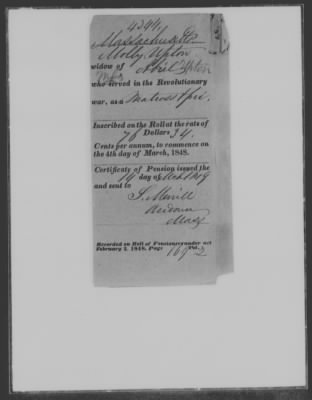 4344.
Massachusetts
Molly Upton
widow of Abiel Upton
who served in the Revolutionary
war, as a Matross & pri.
Inscribed on the Roll at the rate of
76 Dollars 34
Cents per annum, to commence on
the 4th day of March, 1848.
Certificate of Pension issued the
19 day of
and sent to
S. Merrill
Andover
Mass
Recorded on Roll of Pensioners under act
February 2, 1848. Page 169 Vol. 2